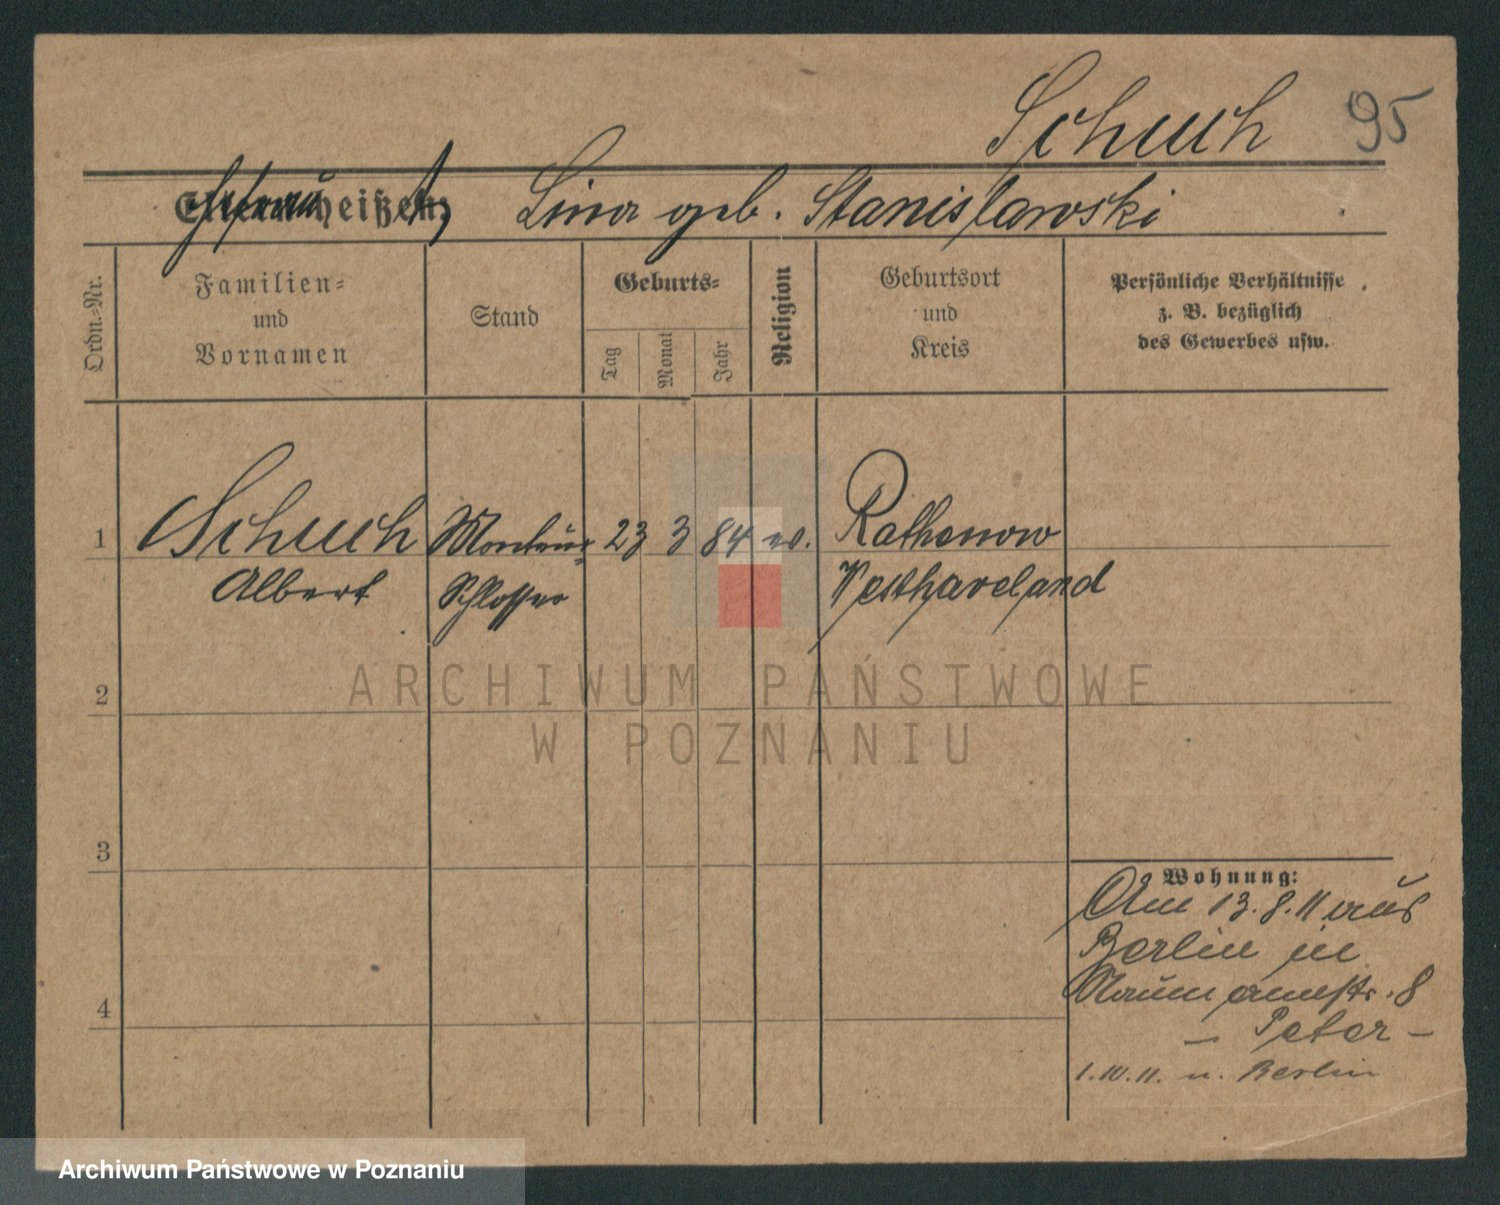 Schuch 95
Ehefrau Lina geb. Stanislawski
Ordn.-Nr.
Familien-
und
Vornamen
Stand
Geburts-
Tag
Monat
Jahr
Religion
Geburtsort
und
Kreis
Persönliche Verhältnisse
z. B. bezüglich
des Gewerbes usw.
1 Schuch Monteur 23 3 84 ev. Rathenow
Albert Schlosser Westhavelland
2
ARCHIWUM PAŃSTWOWE
W POZNANIU
3
Wohnung:
Am 13.8.11 aus
Berlin in
Naumannstr. 8
- Peter -
4
1.10.11. n. Berlin
Archiwum Państwowe w Poznaniu